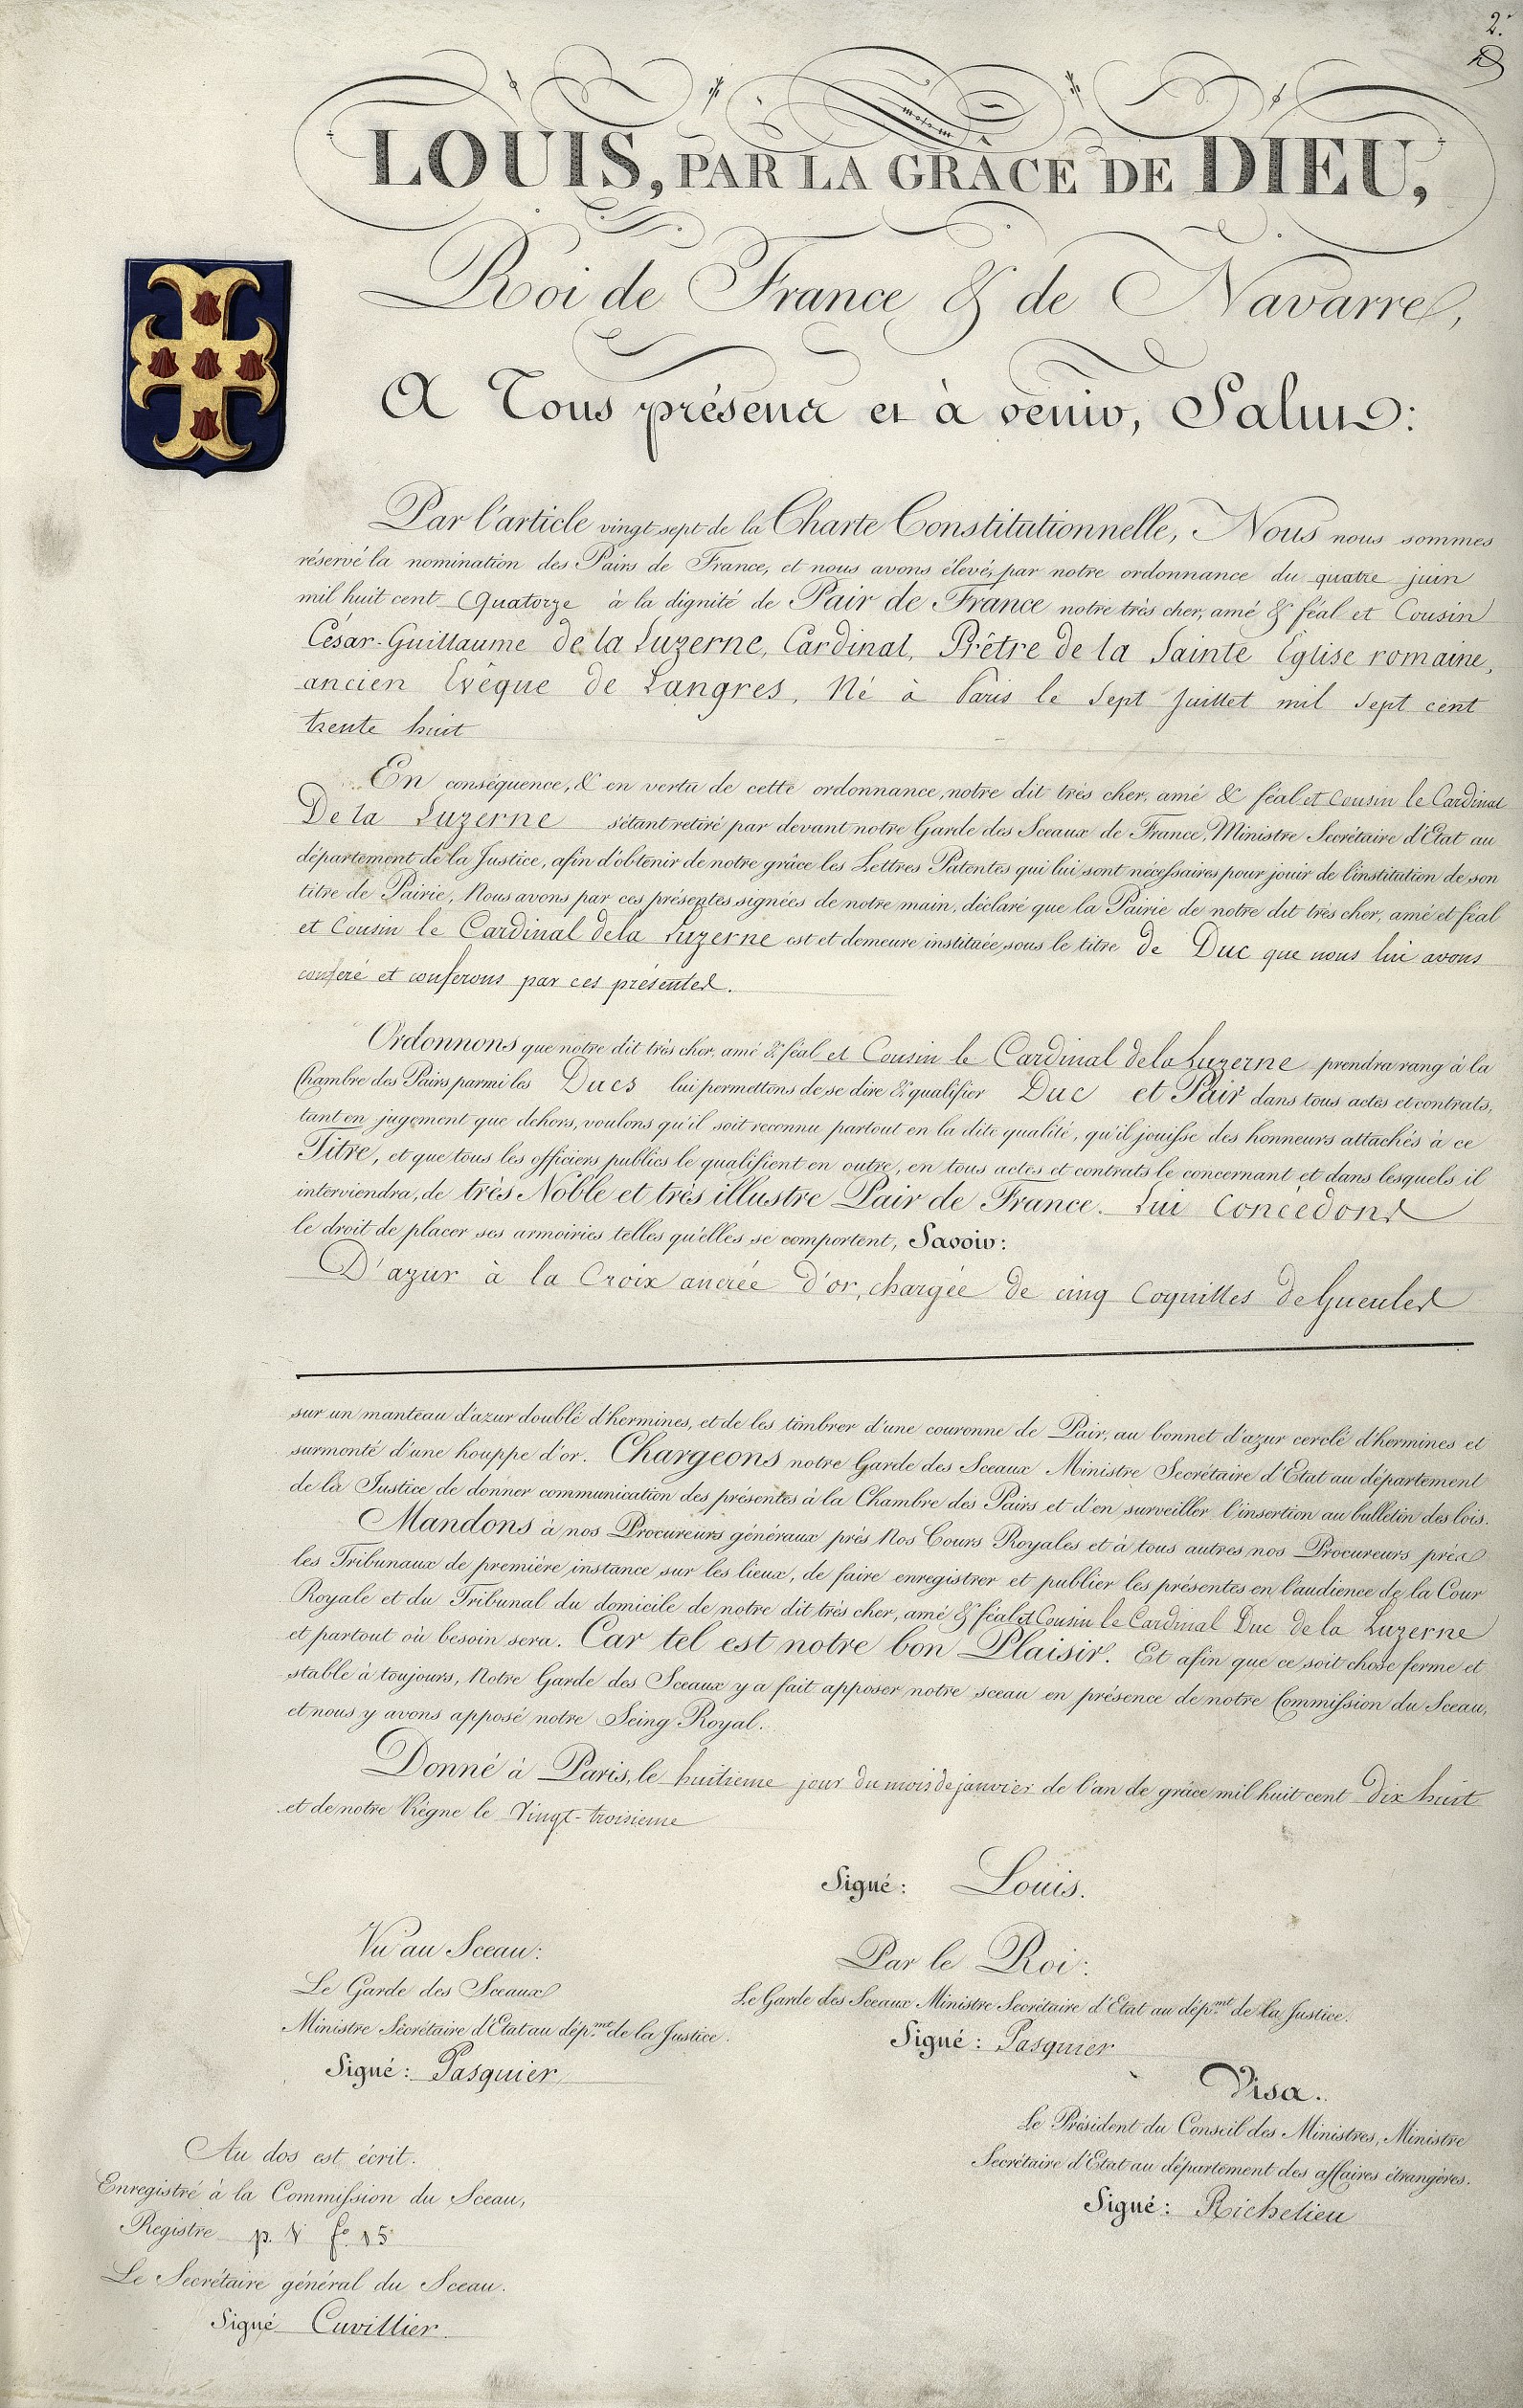 2.
LOUIS, PAR LA GRÂCE DE DIEU,
Roi de France & de Navarre,
A Tous présens et à venir, Salut:
Par l'article vingt sept de la Charte Constitutionnelle, Nous nous sommes
réservé la nomination des Pairs de France, et nous avons élevé, par notre ordonnance du quatre juin
mil huit cent Quatorze à la dignité de Pair de France notre très cher, amé & féal et Cousin
César-Guillaume de la Luzerne, Cardinal, Prêtre de la Sainte Eglise romaine,
ancien Evêque de Langres, Né à Paris le Sept Juillet mil Sept cent
trente huit
En conséquence, & en vertu de cette ordonnance, notre dit très cher, amé & féal et Cousin le Cardinal
De la Luzerne s'étant retiré par devant notre Garde des Sceaux de France, Ministre Secrétaire d'Etat au
département de la Justice, afin d'obtenir de notre grâce les Lettres Patentes qui lui sont nécessaires pour jouir de l'institution de son
titre de Pairie, Nous avons par ces présentes signées de notre main, déclaré que la Pairie de notre dit très cher, amé et féal
et Cousin le Cardinal de la Luzerne est et demeure instituée sous le titre de Duc que nous lui avons
conféré et conferons par ces présentes.
Ordonnons que notre dit très cher, amé & féal et Cousin le Cardinal de la Luzerne prendra rang à la
Chambre des Pairs parmi les Ducs lui permettons de se dire & qualifier Duc et Pair dans tous actes et contrats,
tant en jugement que dehors, voulons qu'il soit reconnu partout en la dite qualité, qu'il jouisse des honneurs attachés à ce
Titre, et que tous les officiers publics le qualifient en outre, en tous actes et contrats le concernant et dans lesquels il
interviendra, de très Noble et très illustre Pair de France. Lui Concédons
le droit de placer ses armoiries telles qu'elles se comportent, Savoir:
D'azur à la Croix ancrée d'or, chargée de cinq Coquilles de Gueules
sur un manteau d'azur doublé d'hermines, et de les timbrer d'une couronne de Pair, au bonnet d'azur cerclé d'hermines et
surmonté d'une houppe d'or. Chargeons notre Garde des Sceaux Ministre Secrétaire d'Etat au département
de la Justice de donner communication des présentes à la Chambre des Pairs et d'en surveiller l'insertion au bulletin des lois.
Mandons à nos Procureurs généraux près Nos Cours Royales et à tous autres nos Procureurs près
les Tribunaux de première instance sur les lieux, de faire enregistrer et publier les présentes en l'audience de la Cour
Royale et du Tribunal du domicile de notre dit très cher, amé & féal et Cousin le Cardinal Duc de la Luzerne
et partout où besoin sera. Car tel est notre bon Plaisir. Et afin que ce soit chose ferme et
stable à toujours, Notre Garde des Sceaux y a fait apposer notre sceau en présence de notre Commission du Sceau,
et nous y avons apposé notre Seing Royal.
Donné à Paris, le huitieme jour du mois de janvier de l'an de grâce mil huit cent Dix huit
et de notre Règne le Vingt-troisieme
Signé: Louis.
Vu au Sceau:
Le Garde des Sceaux
Ministre Secrétaire d'Etat au dép.mt de la Justice.
Signé: Pasquier
Par le Roi:
Le Garde des Sceaux Ministre Secrétaire d'Etat au dép.mt de la Justice.
Signé: Pasquier
Visa.
Le Président du Conseil des Ministres, Ministre
Secrétaire d'Etat au département des affaires étrangères.
Signé: Richelieu
Au dos est écrit.
Enregistré à la Commission du Sceau,
Registre p. V f.o 15
Le Secrétaire général du Sceau.
Signé Cuvillier